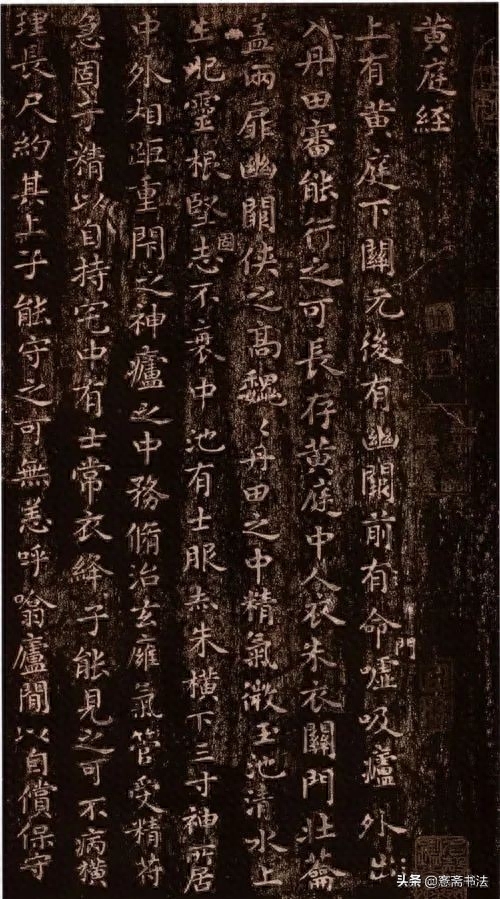 黃庭經
上有黃庭下關元後有幽闕前有命門噓吸廬外出
入丹田審能行之可長存黃庭中人衣朱衣關門壯籥
蓋兩扉幽闕俠之高巍〻丹田之中精氣微玉池清水上
生肥靈根堅固志不衰中池有士服赤朱橫下三寸神所居
中外相距重閇之神廬之中務脩治玄癰氣管受精符
急固子精以自持宅中有士常衣絳子能見之可不病橫
理長尺約其上子能守之可無恙呼噏廬間以自償保守
头条 @愙斋书法